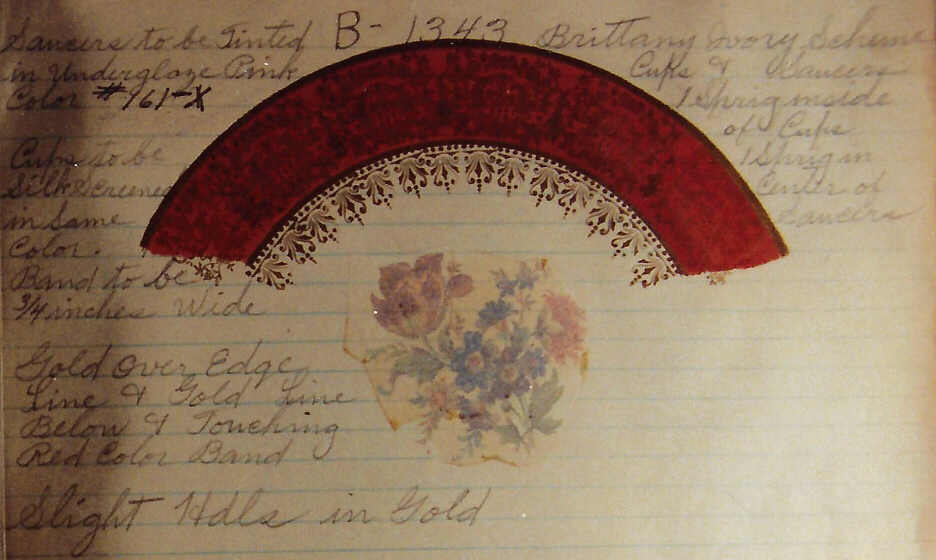 B- 1343
Saucers to be Tinted
in Underglaze Pink
Color #961-X
Cups to be
Silkscreened
in Same
Color.
Band to be
3/4 inches Wide
Gold Over Edge
Line & Gold Line
Below & Touching
Red Color Band
Slight Hdls in Gold
Brittany Ivory Scheme
Cups & Saucers
1 Sprig inside
of Cups
1 Sprig in
Center of
Saucers